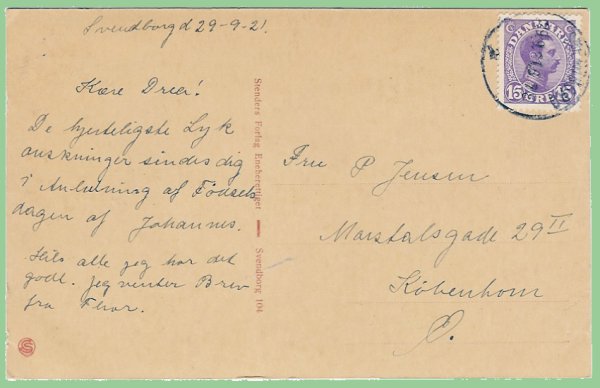 Svendborg d 29-9-21
DANMARK
15 GRE 15
Kære Drea!
De hjerteligste Lyk
ønskninger sendes dig
i Anledning af Fødsels
dagen af Johannes.
Hils alle jeg har det
godt. jeg venter Brev
fra
Stenders Forlag Eneberettiget — Svendborg 104
Fru P Jensen
Marstalsgade 29 II
København
Ø.
S